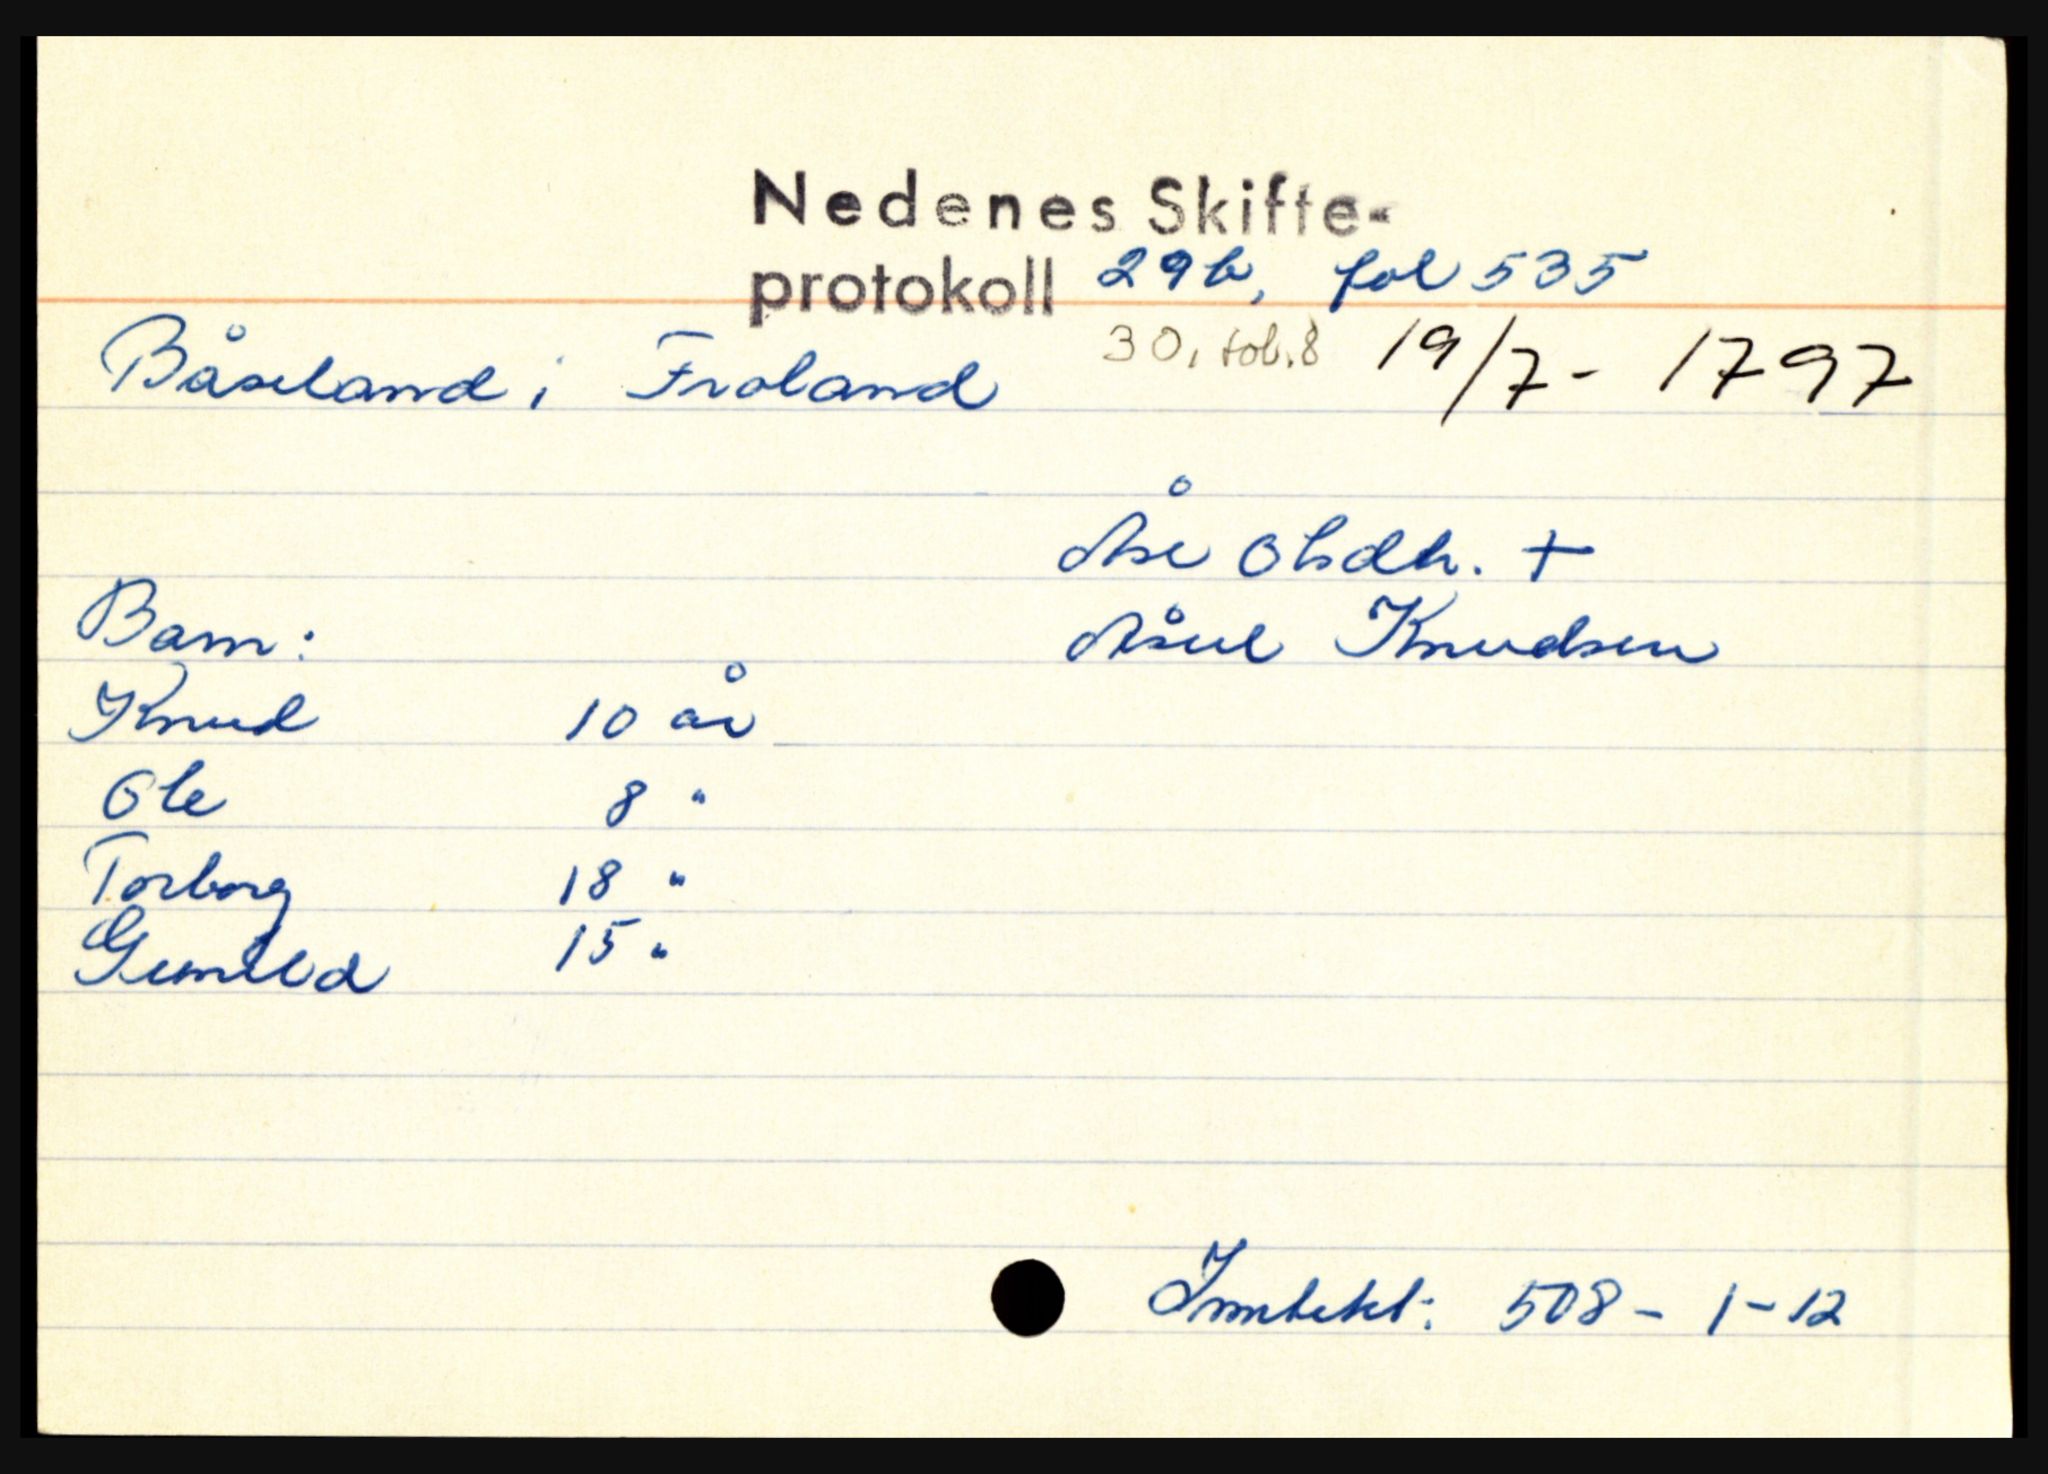 Nedenes Skifte-
protokoll 29b, fol 535
30, fol. 8 19/7- 1797
Båseland i Froland
Åse Olsdtr. +
Barn: Åsul Knudsen
Knud 10 år
Ole 8 "
Torborg 18 "
Gunild 15 "
Inntekt: 508 - 1 - 12